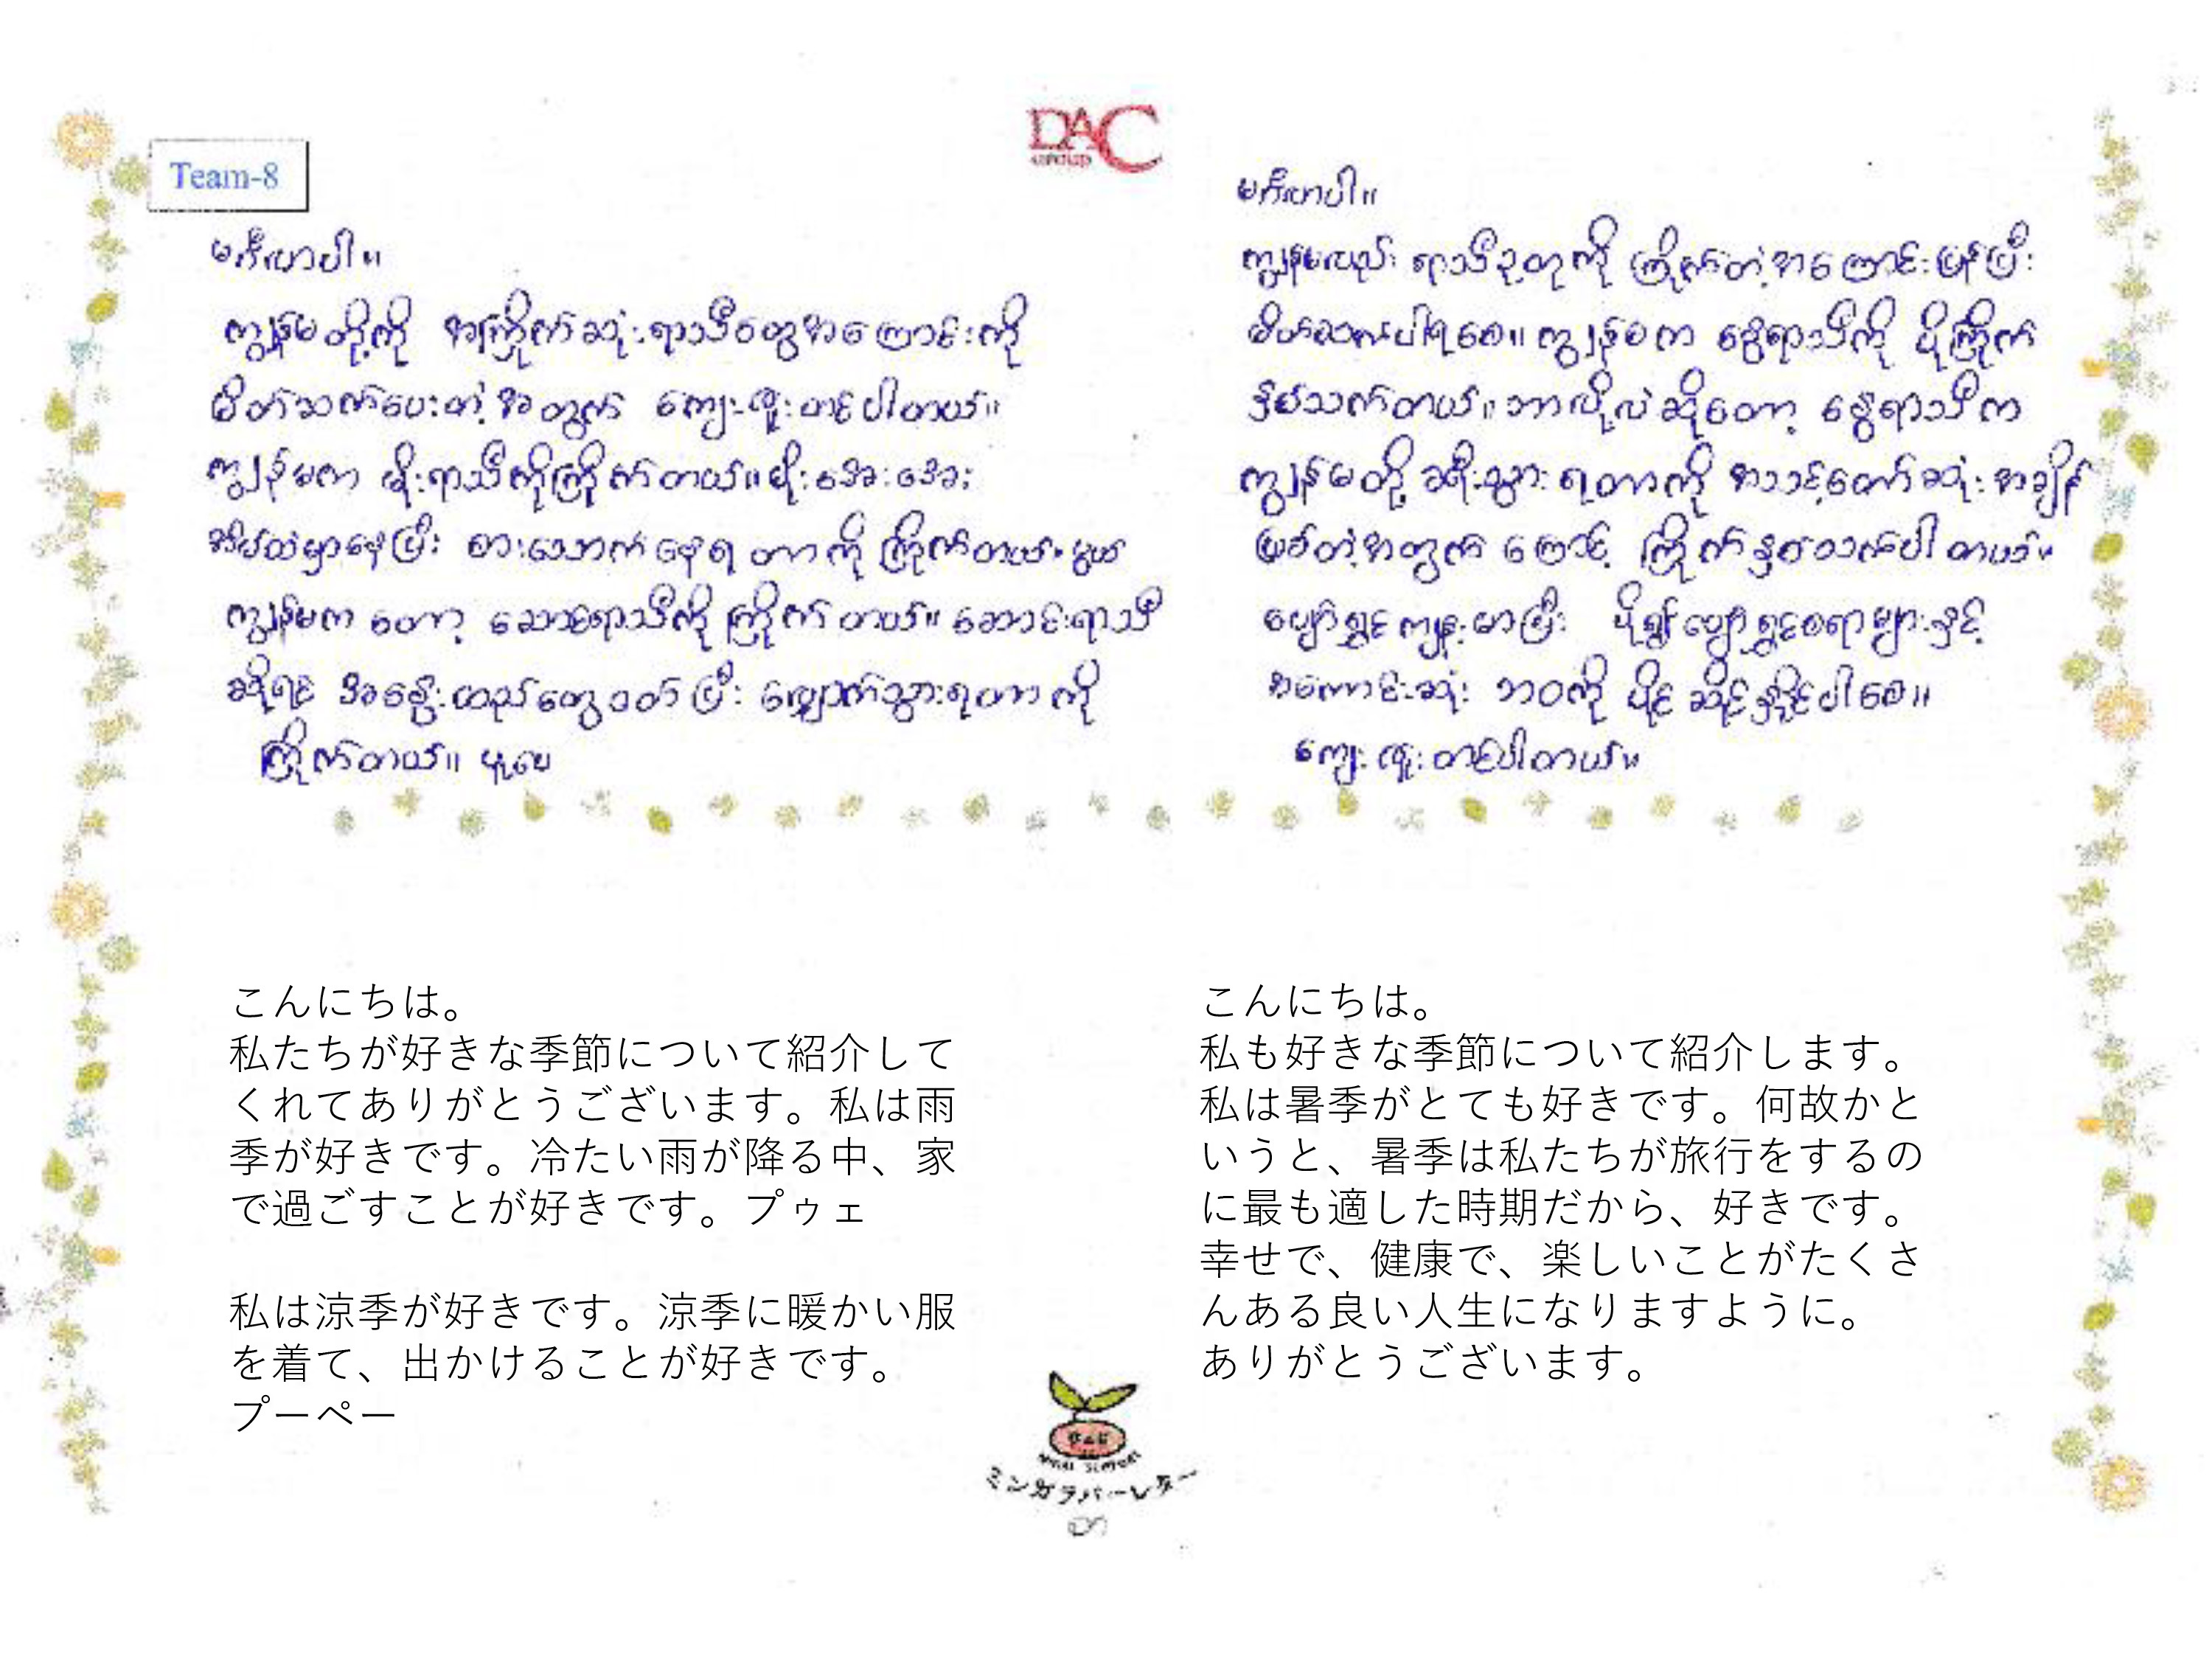 DAC
GROUP
Team-8
မင်္ဂလာပါ။
ကျွန်မတို့ကို အကြိုက်ဆုံးရာသီတွေအကြောင်းကို
မိတ်ဆက်ပေးတဲ့အတွက် ကျေးဇူးတင်ပါတယ်။
ကျွန်မက မိုးရာသီကိုကြိုက်တယ်။ မိုးအေးအေး
အိမ်ထဲမှာနေပြီး စားသောက်နေရတာကို ကြိုက်တယ်။ ပွယ်
ကျွန်မက တော့ ဆောင်းရာသီကို ကြိုက်တယ်။ ဆောင်းရာသီ
ဆိုရင် အနွေးထည်တွေဝတ်ပြီး လျှောက်သွားရတာကို
ကြိုက်တယ်။ ပူပေ
မင်္ဂလာပါ။
ကျွန်မလည်း ရာသီဥတုကို ကြိုက်တဲ့အကြောင်းပြန်ပြီး
မိတ်ဆက်ပါရစေ။ ကျွန်မက နွေရာသီကို ပိုကြိုက်
နှစ်သက်တယ်။ ဘာလို့လဲဆိုတော့ နွေရာသီက
ကျွန်မတို့ ခရီးသွားရတာကို အသင့်တော်ဆုံးအချိန်
ဖြစ်တဲ့အတွက်ကြောင့် ကြိုက်နှစ်သက်ပါတယ်။
ပျော်ရွှင်ကျန်းမာပြီး ပို၍ပျော်ရွှင်စရာများနှင့်
အကောင်းဆုံး ဘဝကို ပိုင်ဆိုင်နိုင်ပါစေ။
ကျေးဇူးတင်ပါတယ်။
こんにちは。
私たちが好きな季節について紹介して
くれてありがとうございます。私は雨
季が好きです。冷たい雨が降る中、家
で過ごすことが好きです。プゥェ
私は涼季が好きです。涼季に暖かい服
を着て、出かけることが好きです。
プーペー
こんにちは。
私も好きな季節について紹介します。
私は暑季がとても好きです。何故かと
いうと、暑季は私たちが旅行をするの
に最も適した時期だから、好きです。
幸せで、健康で、楽しいことがたくさ
んある良い人生になりますように。
ありがとうございます。
ミンガラバーレター